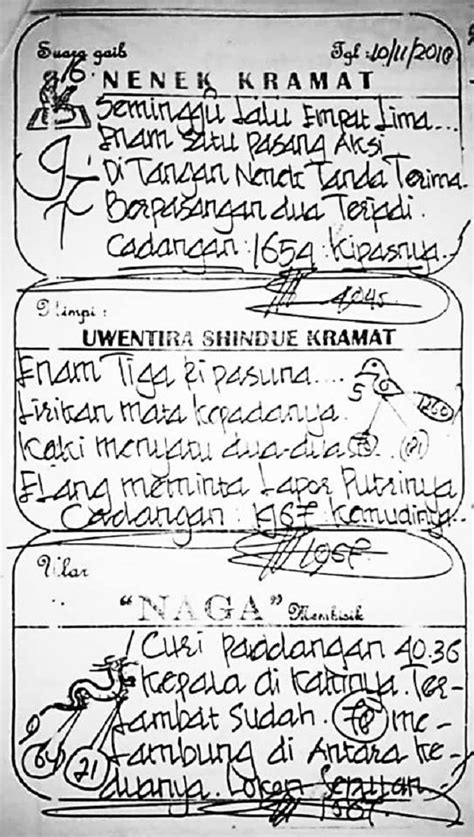 Suara gaib Tgl : 10/11/2018
16
NENEK KRAMAT
Seminggu Lalu Empat Lima...
Enam Satu Pasang Aksi
Di Tangan Nenek Tanda Terima.
Berpasangan dua Terjadi.
Cadangan : 1654 : Kipasnya
4045
Mimpi :
UWENTIRA SHINDUE KRAMAT
Enam Tiga Di pasung....
5
Lirikan mata kepadanya
Kaki menyatu dua-dua
Elang meminta Lapor Putrinya
Cadangan : 1967 Kemudinya
1057
Ular
"NAGA" Membisik
Curi pandangan 40.36
Kepala di Kakinya. Ter-
Lambat Sudah. 78 me-
9
64 21
Lambung di Antara ke-
duanya.